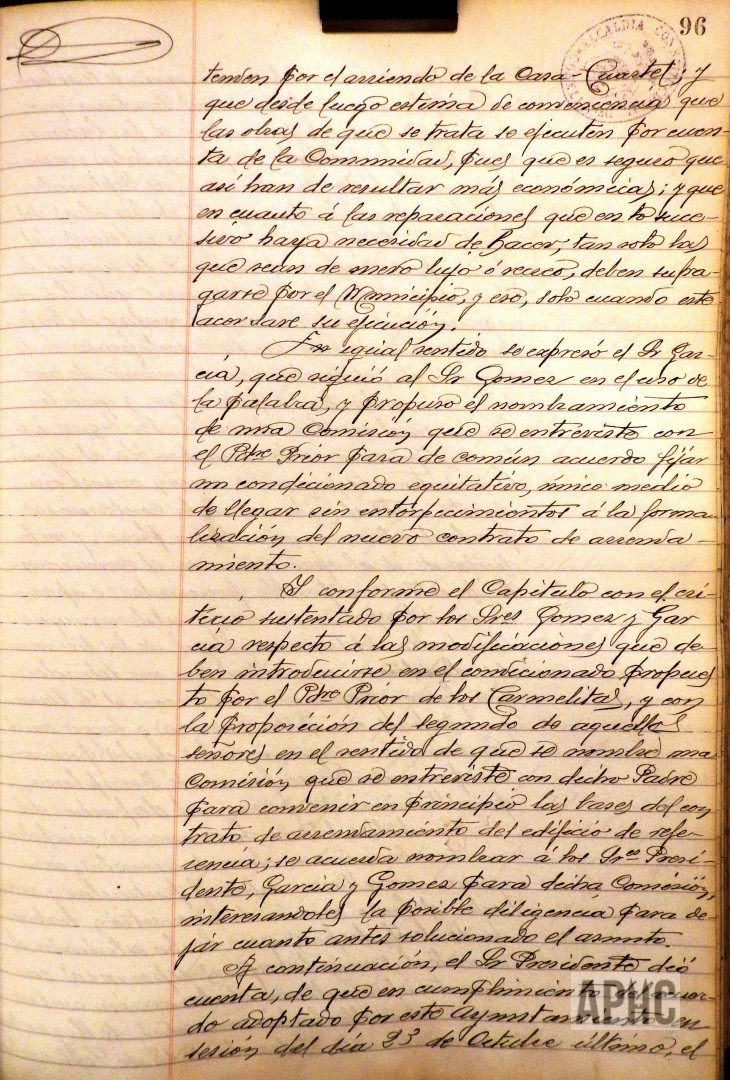 96
ALCALDIA CON
tenden por el arriendo de la Casa-Cuartel, y
que desde luego estima de conveniencia que
las obras de que se trata se ejecuten por cuen-
ta de la Comunidad, pues que es seguro que
así han de resultar más económicas; y que
en cuanto á las reparaciones que en lo suce-
sivo haya necesidad de hacer, tan solo las
que sean de mero lujo ó recreo, deben sufra-
garse por el Municipio, y eso, solo cuando este
acordare su ejecución.
En igual sentido se expresó el Sr Gar-
cía, que siguió al Sr Gomez en el uso de
la palabra, y propuso el nombramiento
de una Comisión que se entreviste con
el Pdre Prior para de común acuerdo fijar
un condicionado equitativo, único medio
de llegar sin entorpecimientos á la forma-
lización del nuevo contrato de arrenda-
miento.
Y conforme el Capitulo con el cri-
terio sustentado por los Sres Gomez y Gar
cía respecto á las modificaciones que de-
ben introducirse en el condicionado propues
to por el Pdre Prior de los Carmelitas, y con
la proposición del segundo de aquellos
señores en el sentido de que se nombre una
Comisión que se entreviste con dicho Padre
para convenir en principio las bases del con
trato de arrendamiento del edificio de refe-
rencia; se acuerda nombrar á los Sres Presi-
dente, Garcia y Gomez para dicha Comisión,
interesandoles la posible diligencia para de-
jar cuanto antes solucionado el asunto.
A continuación, el Sr Presidente dió
cuenta, de que en cumplimiento del acuer-
do adoptado por este Ayuntamiento en
sesión del día 23 de Octubre último, el
APHC